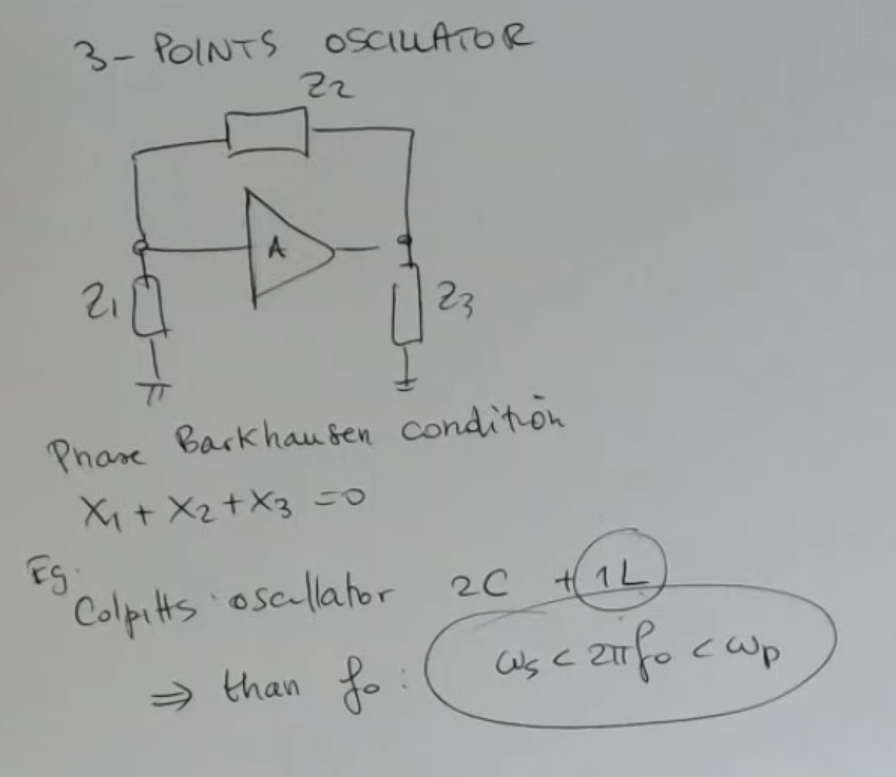 3- POINTS OSCILLATOR
Z2
A
Z1
Z3
Phase Barkhausen condition
X1 + X2 + X3 = 0
Eg.
Colpitts oscillator 2C + 1L
⇒ than fo : ωs < 2πfo < ωp